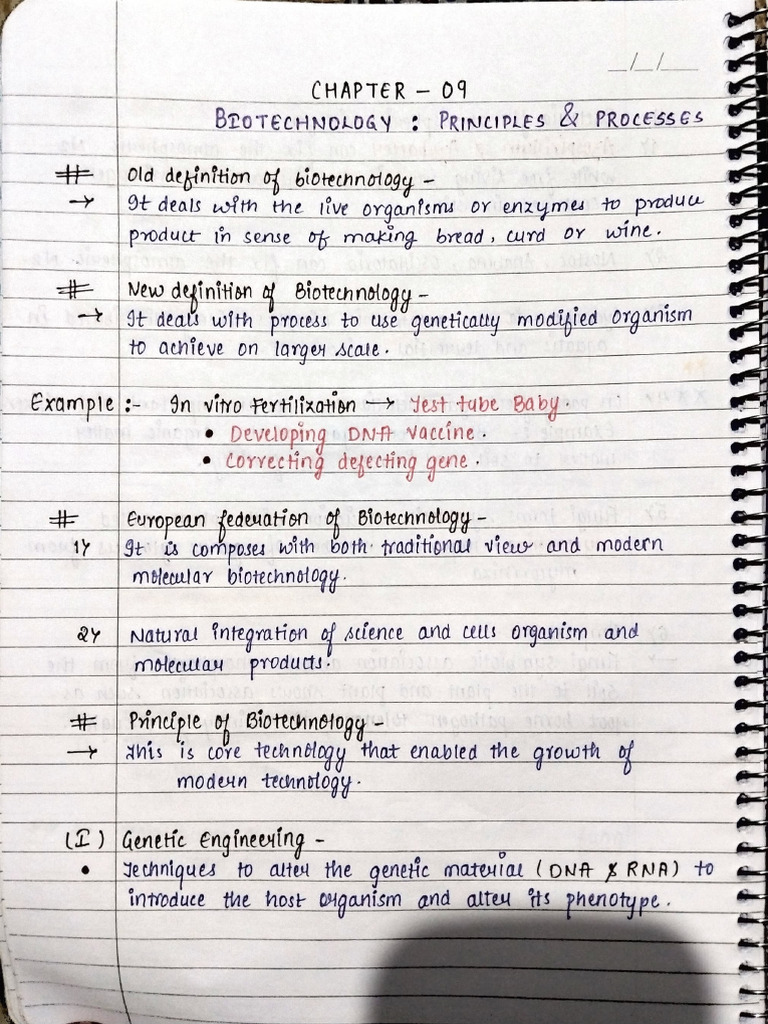 _/_/___
CHAPTER - 09
BIOTECHNOLOGY : PRINCIPLES & PROCESSES
# Old definition of biotechnology -
→ It deals with the live organisms or enzymes to produce
product in sense of making bread, curd or wine.
# New definition of Biotechnology -
→ It deals with process to use genetically modified organism
to achieve on larger scale.
Example :- In vitro Fertilization → Test tube Baby.
• Developing DNA vaccine.
• Correcting defecting gene.
# European federation of Biotechnology -
1) It is composes with both traditional view and modern
molecular biotechnology.
2) Natural integration of science and cells organism and
molecular products.
# Principle of Biotechnology -
→ This is core technology that enabled the growth of
modern technology.
(I) Genetic Engineering -
• Techniques to alter the genetic material (DNA & RNA) to
introduce the host organism and alter its phenotype.